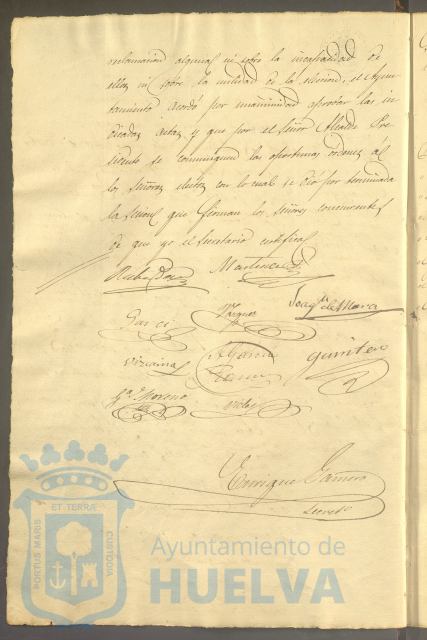 reclamacion alguna ni sobre la incapacidad de
ellos ni sobre la nulidad de la eleccion, el Ayun-
tamiento acordó por unanimidad aprobar las in-
dicadas actas y que por el Señor Alcalde Pre-
sidente se comuniquen las oportunas ordenes al
los Señores electos con lo cual se dió por terminada
la sesion que firman los Señores concurrentes
de que yo el Secretario certifico
Martinez
Joaqn. de Mora
Garci
Vazquez
Vizcaina
A. Garcia
Quintero
Moreno
Enrique
Secreto.
PORTUS MARIS ET TERRÆ CUSTODIA
Ayuntamiento de
HUELVA